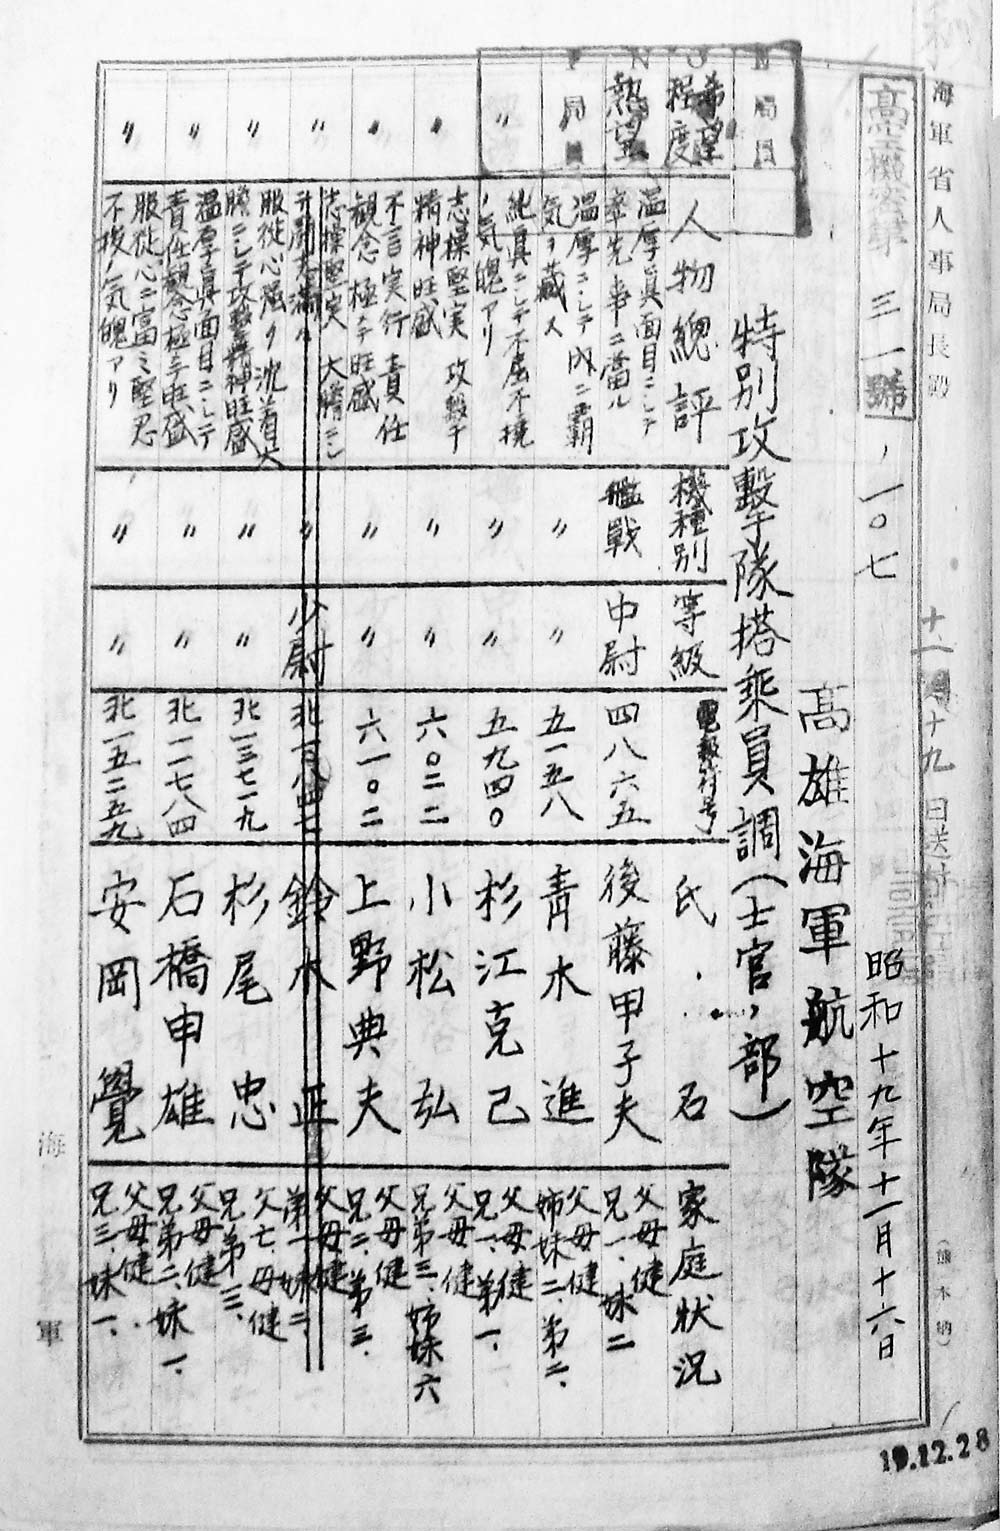 海軍省人事局長殿
十二月十九日送付
高空機密第三一號ノ一〇七
昭和十九年十一月十六日
高雄海軍航空隊
特別攻撃隊搭乗員調(士官ノ部)
希望程度 人物總評 機種別 等級 電報符号 氏名 家庭狀況
熱望 温厚眞面目ニシテ率先事ニ當ル 艦戰 中尉 四八六五 後藤甲子夫 父母健 兄一、妹二
〃 温厚ニシテ内ニ覇気ヲ藏ス 〃 〃 五一五八 青木進 父母健 姉妹二、弟二、
〃 純眞ニシテ不屈不撓ノ気魄アリ 〃 〃 五九四〇 杉江克己 父母健 兄一、弟一、
〃 志操堅実 攻撃精神旺盛 〃 〃 六〇二二 小松弘 父母健 兄弟三、姉妹六
〃 不言実行 責任観念極メテ旺盛 〃 〃 六一〇二 上野典夫 父母健 兄二、弟三、
〃 志操堅実 大膽ニシ 〃 少尉 鈴木正 父母健 弟一、妹二、
〃 服從心强ク沈着大膽ニシテ攻撃精神旺盛 〃 〃 北一三七一九 杉尾忠 父亡、母健 兄弟三、
〃 温厚眞面目ニシテ責任観念極メテ旺盛 〃 〃 北一一七八四 石橋申雄 父母健 兄弟二、妹一、
〃 服從心ニ富ミ堅忍不抜ノ気魄アリ 〃 〃 北一五二五九 安岡覺 父母健 兄三、妹一、
海軍
19.12.28